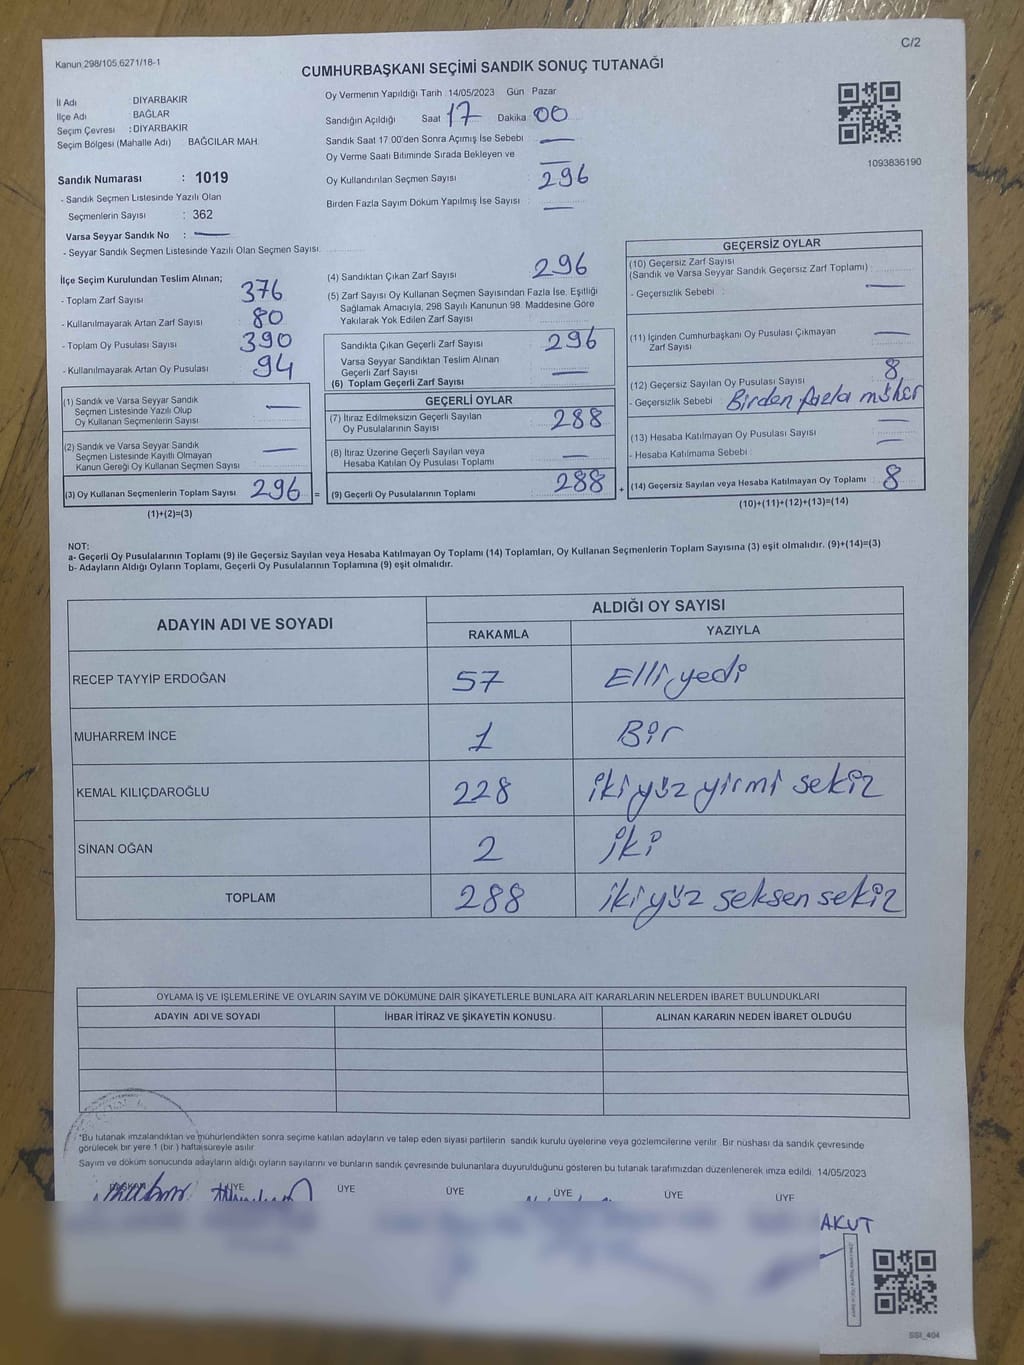 C/2
Kanun 298/105,6271/18-1
CUMHURBAŞKANI SEÇİMİ SANDIK SONUÇ TUTANAĞI
İl Adı : DİYARBAKIR
İlçe Adı : BAĞLAR
Seçim Çevresi : DİYARBAKIR
Seçim Bölgesi (Mahalle Adı) BAĞCILAR MAH.
Sandık Numarası : 1019
- Sandık Seçmen Listesinde Yazılı Olan
Seçmenlerin Sayısı : 362
Varsa Seyyar Sandık No :
- Seyyar Sandık Seçmen Listesinde Yazılı Olan Seçmen Sayısı
Oy Vermenin Yapıldığı Tarih : 14/05/2023 Gün Pazar
Sandığın Açıldığı Saat 17 Dakika 00
Sandık Saat 17.00'den Sonra Açımış İse Sebebi
Oy Verme Saati Bitiminde Sırada Bekleyen ve
Oy Kullandırılan Seçmen Sayısı : 296
Birden Fazla Sayım Döküm Yapılmış İse Sayısı
1093836190
İlçe Seçim Kurulundan Teslim Alınan;
- Toplam Zarf Sayısı 376
- Kullanılmayarak Artan Zarf Sayısı 80
- Toplam Oy Pusulası Sayısı 390
- Kullanılmayarak Artan Oy Pusulası 94
(1) Sandık ve Varsa Seyyar Sandık
Seçmen Listesinde Yazılı Olup
Oy Kullanan Seçmenlerin Sayısı
(2) Sandık ve Varsa Seyyar Sandık
Seçmen Listesinde Kayıtlı Olmayan
Kanun Gereği Oy Kullanan Seçmen Sayısı
(3) Oy Kullanan Seçmenlerin Toplam Sayısı 296 =
(1)+(2)=(3)
(4) Sandıktan Çıkan Zarf Sayısı 296
(5) Zarf Sayısı Oy Kullanan Seçmen Sayısından Fazla İse, Eşitliği
Sağlamak Amacıyla, 298 Sayılı Kanunun 98. Maddesine Göre
Yakılarak Yok Edilen Zarf Sayısı
Sandıkta Çıkan Geçerli Zarf Sayısı 296
Varsa Seyyar Sandıktan Teslim Alınan
Geçerli Zarf Sayısı
(6) Toplam Geçerli Zarf Sayısı
GEÇERLİ OYLAR
(7) İtiraz Edilmeksizin Geçerli Sayılan
Oy Pusulalarının Sayısı 288
(8) İtiraz Üzerine Geçerli Sayılan veya
Hesaba Katılan Oy Pusulası Toplamı
(9) Geçerli Oy Pusulalarının Toplamı 288 +
GEÇERSİZ OYLAR
(10) Geçersiz Zarf Sayısı
(Sandık ve Varsa Seyyar Sandık Geçersiz Zarf Toplamı)
- Geçersizlik Sebebi :
(11) İçinden Cumhurbaşkanı Oy Pusulası Çıkmayan
Zarf Sayısı
(12) Geçersiz Sayılan Oy Pusulası Sayısı 8
- Geçersizlik Sebebi : Birden fazla mühür
(13) Hesaba Katılmayan Oy Pusulası Sayısı
- Hesaba Katılmama Sebebi :
(14) Geçersiz Sayılan veya Hesaba Katılmayan Oy Toplamı 8
(10)+(11)+(12)+(13)=(14)
NOT:
a- Geçerli Oy Pusulalarının Toplamı (9) ile Geçersiz Sayılan veya Hesaba Katılmayan Oy Toplamı (14) Toplamları, Oy Kullanan Seçmenlerin Toplam Sayısına (3) eşit olmalıdır. (9)+(14)=(3)
b- Adayların Aldığı Oyların Toplamı, Geçerli Oy Pusulalarının Toplamına (9) eşit olmalıdır.
ADAYIN ADI VE SOYADI ALDIĞI OY SAYISI
RAKAMLA YAZIYLA
RECEP TAYYİP ERDOĞAN 57 Elli yedi
MUHARREM İNCE 1 Bir
KEMAL KILIÇDAROĞLU 228 iki yüz yirmi sekiz
SİNAN OĞAN 2 iki
TOPLAM 288 iki yüz seksen sekiz
OYLAMA İŞ VE İŞLEMLERİNE VE OYLARIN SAYIM VE DÖKÜMÜNE DAİR ŞİKAYETLERLE BUNLARA AİT KARARLARIN NELERDEN İBARET BULUNDUKLARI
ADAYIN ADI VE SOYADI İHBAR İTİRAZ VE ŞİKAYETİN KONUSU ALINAN KARARIN NEDEN İBARET OLDUĞU
*Bu tutanak imzalandıktan ve mühürlendikten sonra seçime katılan adayların ve talep eden siyasi partilerin sandık kurulu üyelerine veya gözlemcilerine verilir. Bir nüshası da sandık çevresinde
görülecek bir yere 1 (bir) hafta süreyle asılır
Sayım ve döküm sonucunda adayların aldığı oyların sayılarını ve bunların sandık çevresinde bulunanlara duyurulduğunu gösteren bu tutanak tarafımızdan düzenlenerek imza edildi. 14/05/2023
BAŞKAN ÜYE ÜYE ÜYE ÜYE ÜYE ÜYE
AKUT
SSI_404